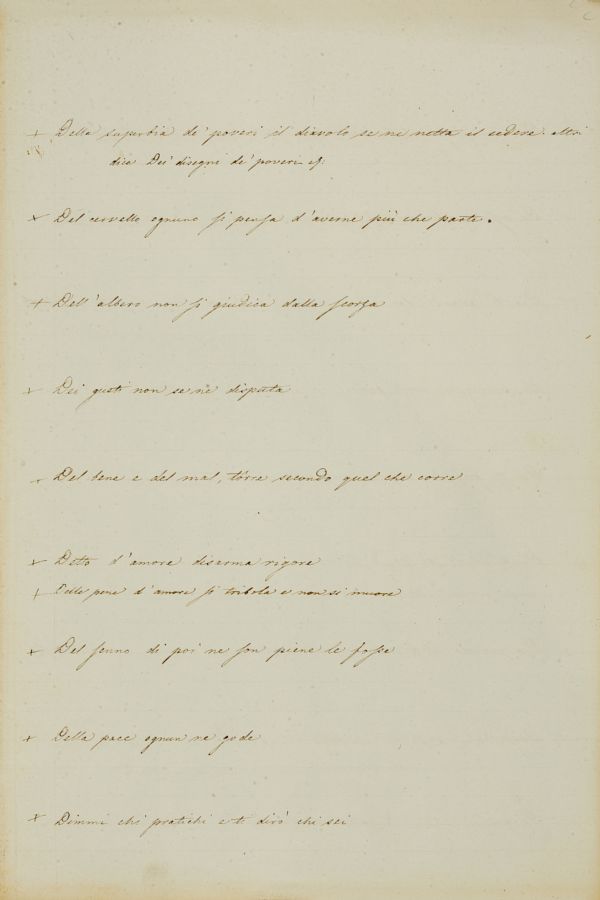 + Della superbia de' poveri il diavolo se ne netta il sedere. Altri
dice Dei disegni de' poveri
x Del cervello ognuno si pensa d'averne più che parte.
+ Dell'albero non si giudica dalla scorza
x Dei gusti non se ne disputa
Del bene e del mal, tòrre secondo quel che corre
x Detto d'amore disarma rigore
+ Nelle pene d'amore si tribola e non si muore
x Del senno di poi ne son piene le fosse
x Della pace ognun ne gode
x Dimmi chi pratichi e ti dirò chi sei